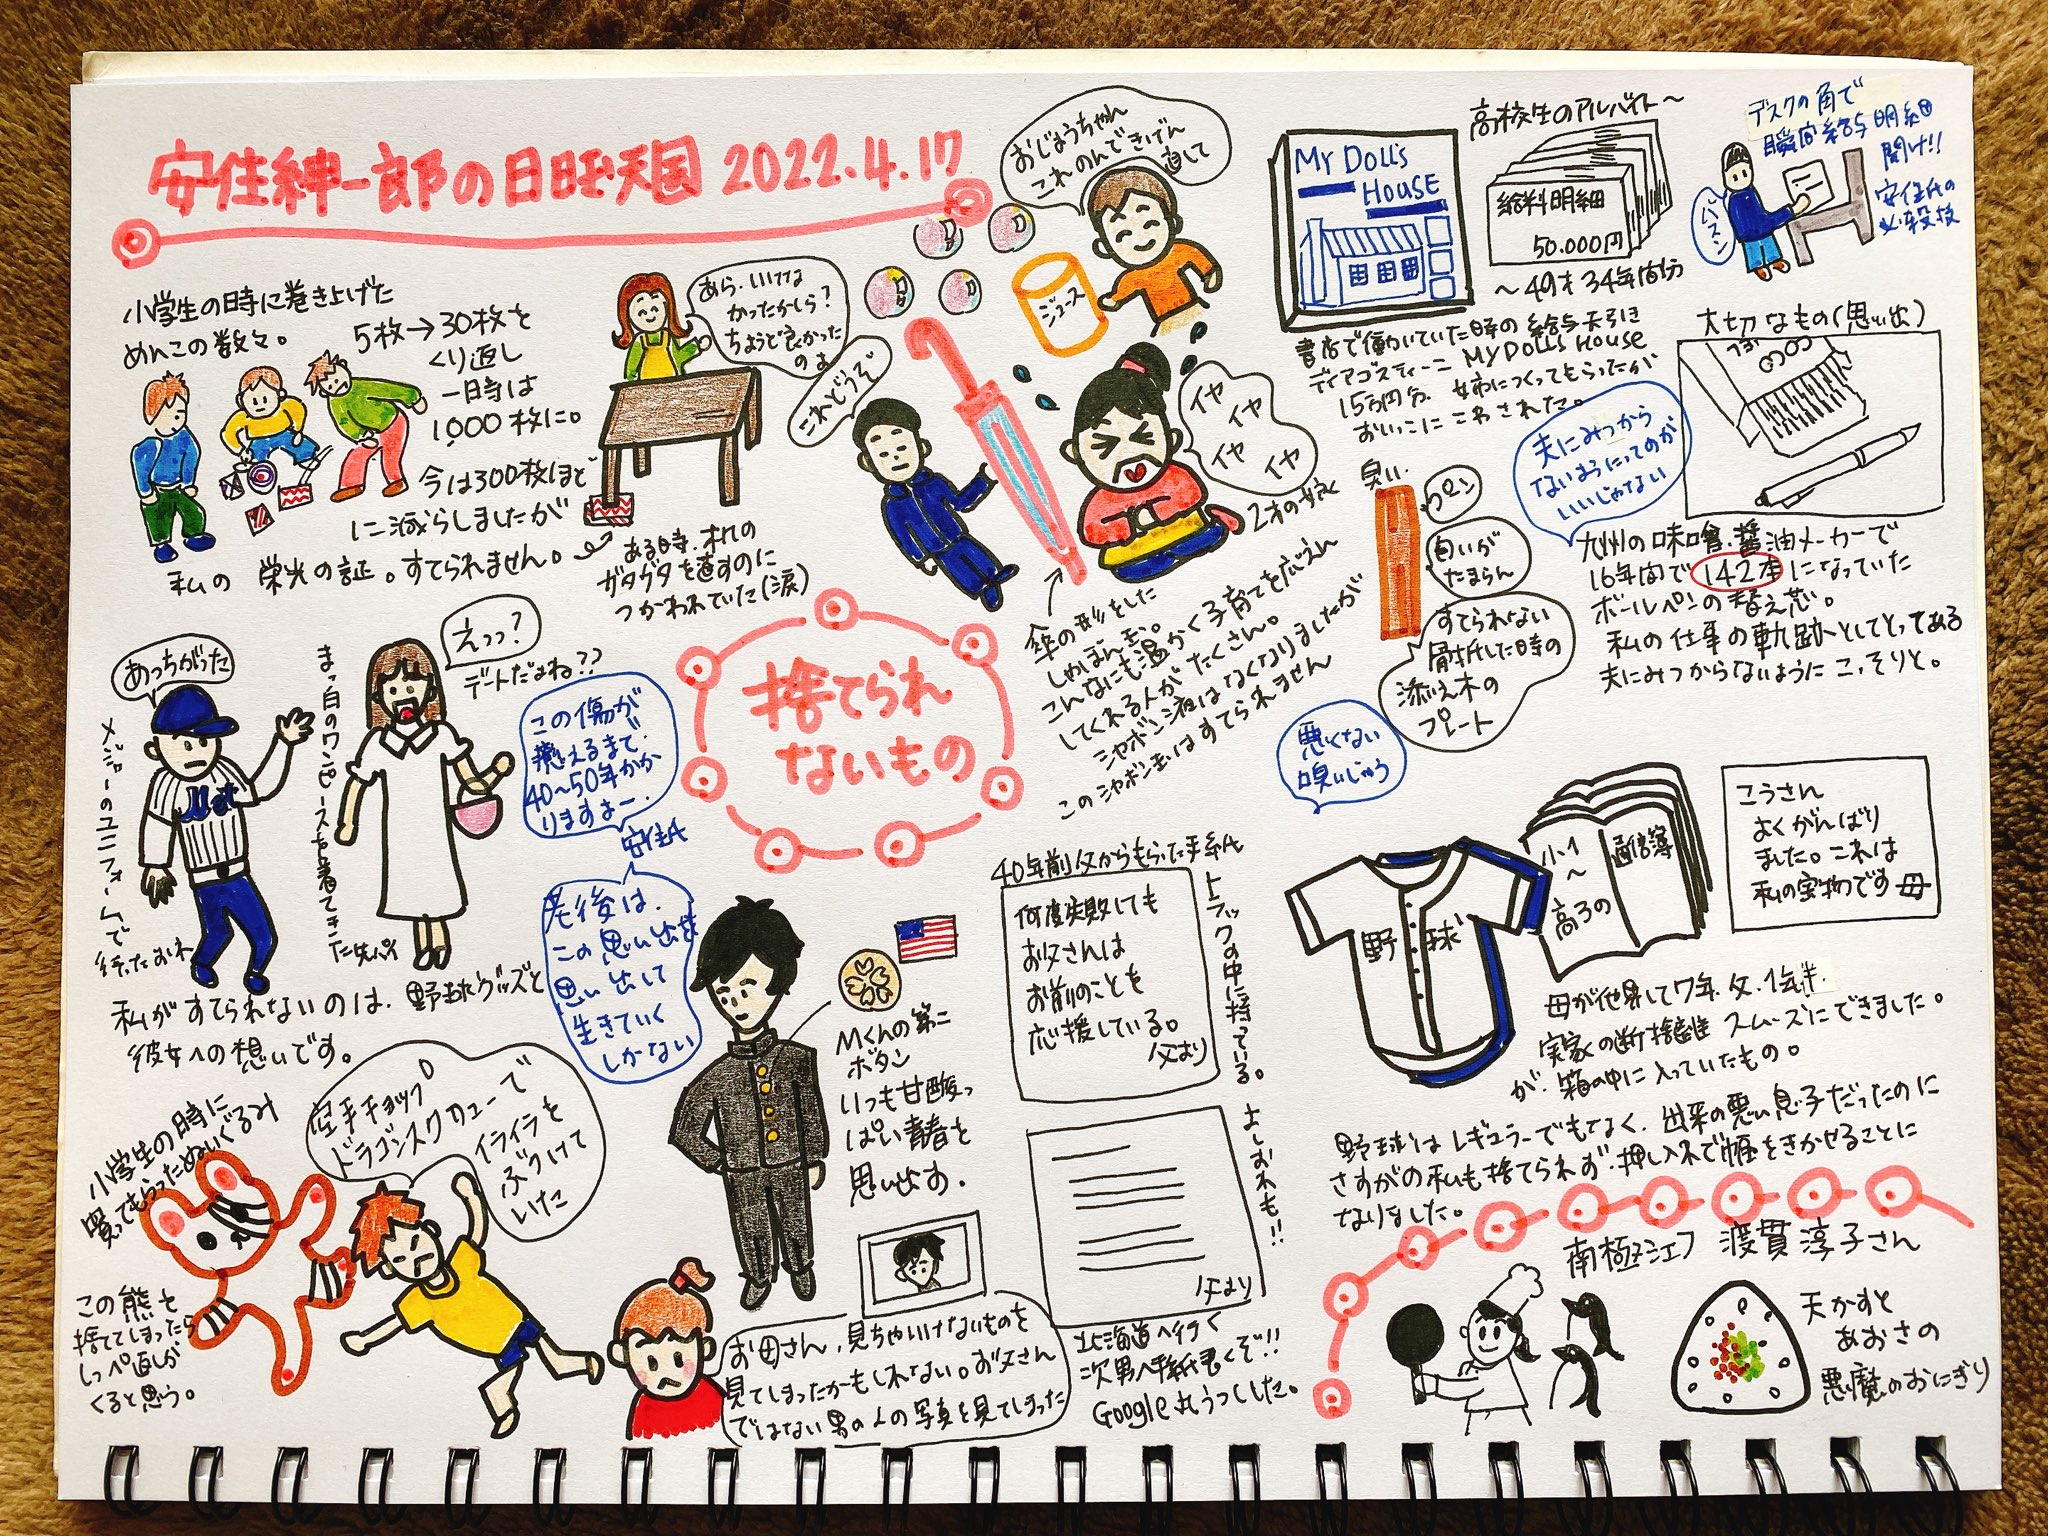 安住紳一郎の日曜天国 2022.4.17
小学生の時に巻き上げた
めんこの数々。
5枚→30枚を
くり返し
一時は
1,000枚に。
今は300枚ほど
に減らしましたが
私の 栄光の証。すてられません。
あら、いけな
かったかしら?
ちょうど良かった
のよ
ある時、机の
ガタガタを直すのに
つかわれていた(涙)
おじょうちゃん
これのんできげん
直して
ジュース
これどうぞ
イヤ
イヤ
イヤ
イヤ
2才の娘
傘の形をした
しゃぼん玉。
こんなにも温かく子育てを応えん
してくれる人がたくさん。
シャボン液はなくなりましたが
このシャボン玉はすてられません
My Doll's
House
高校生のアルバイト〜
給料明細
50.000円
〜49才34年間分
デスクの角で
瞬間給与明細
開け!!
安住氏の
必殺技
書店で働いていた時の給与天引き
ディアゴスティーニ My Doll's House
15万円分 姉につくってもらったが
おいっこにこわされた。
大切なもの(思い出)
夫にみつから
ないようにってのが
いいじゃない
九州の味噌、醤油メーカーで
16年間で142本になっていた
ボールペンの替え芯。
私の仕事の軌跡としてとってある
夫にみつからないようにこっそりと。
臭い
クンクン
匂いが
たまらん
すてられない
骨折した時の
添え木の
プレート
悪くない
嗅いじゃう
捨てられ
ないもの
あっちがった
メジャーのユニフォームで
行ったおれ
Met
えっっ?
デートだよね??
まっ白のワンピースを着てきた先パイ
私がすてられないのは、野球グッズと
彼女への想いです。
この傷が
癒えるまで
40〜50年かか
りますよー。
安住A
老後は、
この思い出を
思い出して
生きていく
しかない
Mくんの第二
ボタン
いつも甘酸っ
ぱい青春を
思い出す。
40年前父からもらった手紙
何度失敗しても
お父さんは
お前のことを
応援している。
父より
トラックの中に持っている。
よしおれも!!
父より
北海道へ行く
次男へ手紙書くぞ!!
Google丸うつしした。
野球
小1
〜
高3の
通信簿
こうさん
よくがんばり
ました。これは
私の宝物です 母
母が他界して7年、父、1年半。
実家の断捨離 スムーズにできました
が、箱の中に入っていたもの。
野球はレギュラーでもなく、出来の悪い息子だったのに
さすがの私も捨てられず、押し入れで幅をきかせることに
なりました。
小学生の時に
買ってもらったぬいぐるみ
空手チョップ
ドラゴンスクリューで
イライラを
ぶつけて
いた
この熊を
捨ててしまったら
しっぺ返しが
くると思う。
お母さん、見ちゃいけないものを
見てしまったかもしれない。お父さん
ではない男の人の写真を見てしまった
南極シェフ 渡貫淳子さん
天かすと
あおさの
悪魔のおにぎり